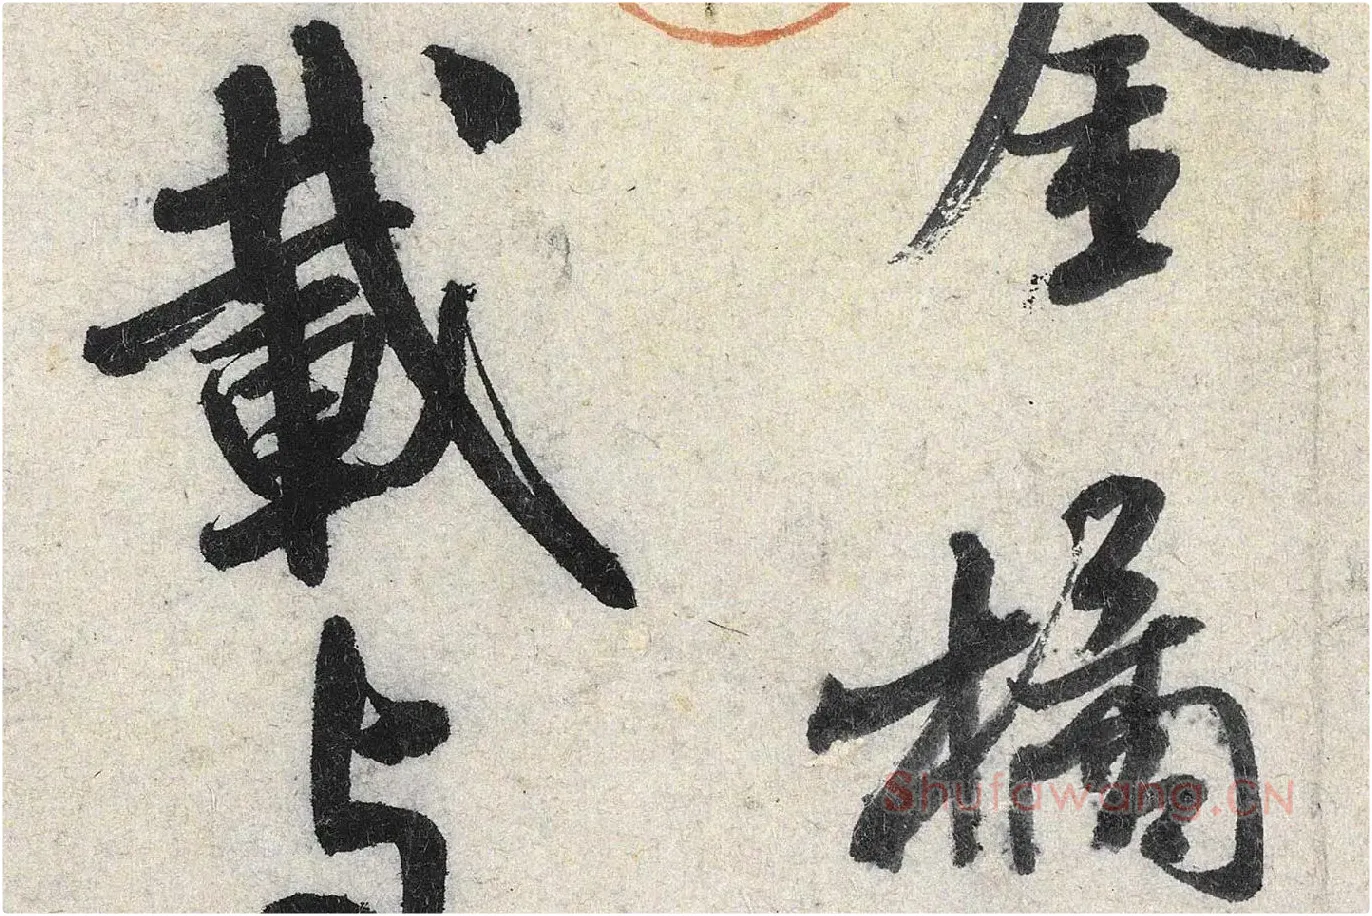 金橘
載与
Shufawang.CN